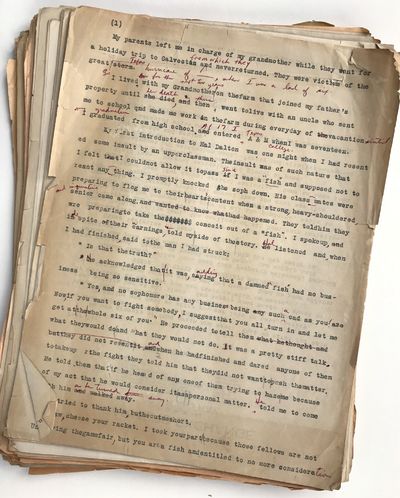 (1)
My parents left me in charge of my grandmother while they went for
from which they
a holiday trip to Galveston and neverreturned. They were victims of the
great storm. hurricane of when I was a lad of six
I lived with my Grandmotheron thefarm that joined my father's
for the next years
property until she died, and then went tolive with an uncle who sent
me to school and made me work on thefarm during everyday of thevacation
I graduated from high school and entered A & M when I was seventeen.
At 17 I
College.
My first introduction to Hal Dalton was one night when I had resent
ed some insult by an upperclassman. Theinsult was of such nature that
I felt that I couldnot allow it topass I was a "fish" and supposed not to
resent any thing. I promptly knocked the soph down. His class mates were
preparing to flog me to theirheartscontent when a strong, heavy-shouldered,
senior came along and wanted to know whathad happened. They toldhim they
were preparingto take the conceit out of a "fish". I spokeup, and
in spite of their warnings, told myside of thestory. Hal listened and when
I had finished, said tothe man I had struck;
" Is that thetruth?"
He acknowledged thatit was, adding that a damned fish had no bus-
iness being so sensitive.
" Yes, and no sophomore has any business being any such cad as you are
Nowif you want to fight somebody, I suggest that you all turn in and let me
get at thewhole six of you". He proceeded totell them
what theywould do and what they would not do. It was a pretty stiff talk,
butthey did not resentit and when he hadfinished and dared anyone of them
to takeup the fight they told him that theydid not wantto push thematter.
He told them thatif he heard of any one of them trying to haze me because
of my act that he would consider itasapersonal matter. He told me to come
with him and walked away.
tried to thank him, buthecutmeshort.
cheese your racket. I took yourpartbecause those fellows are not
ing thegamefair, but you are a fish andentitled to no more consideration